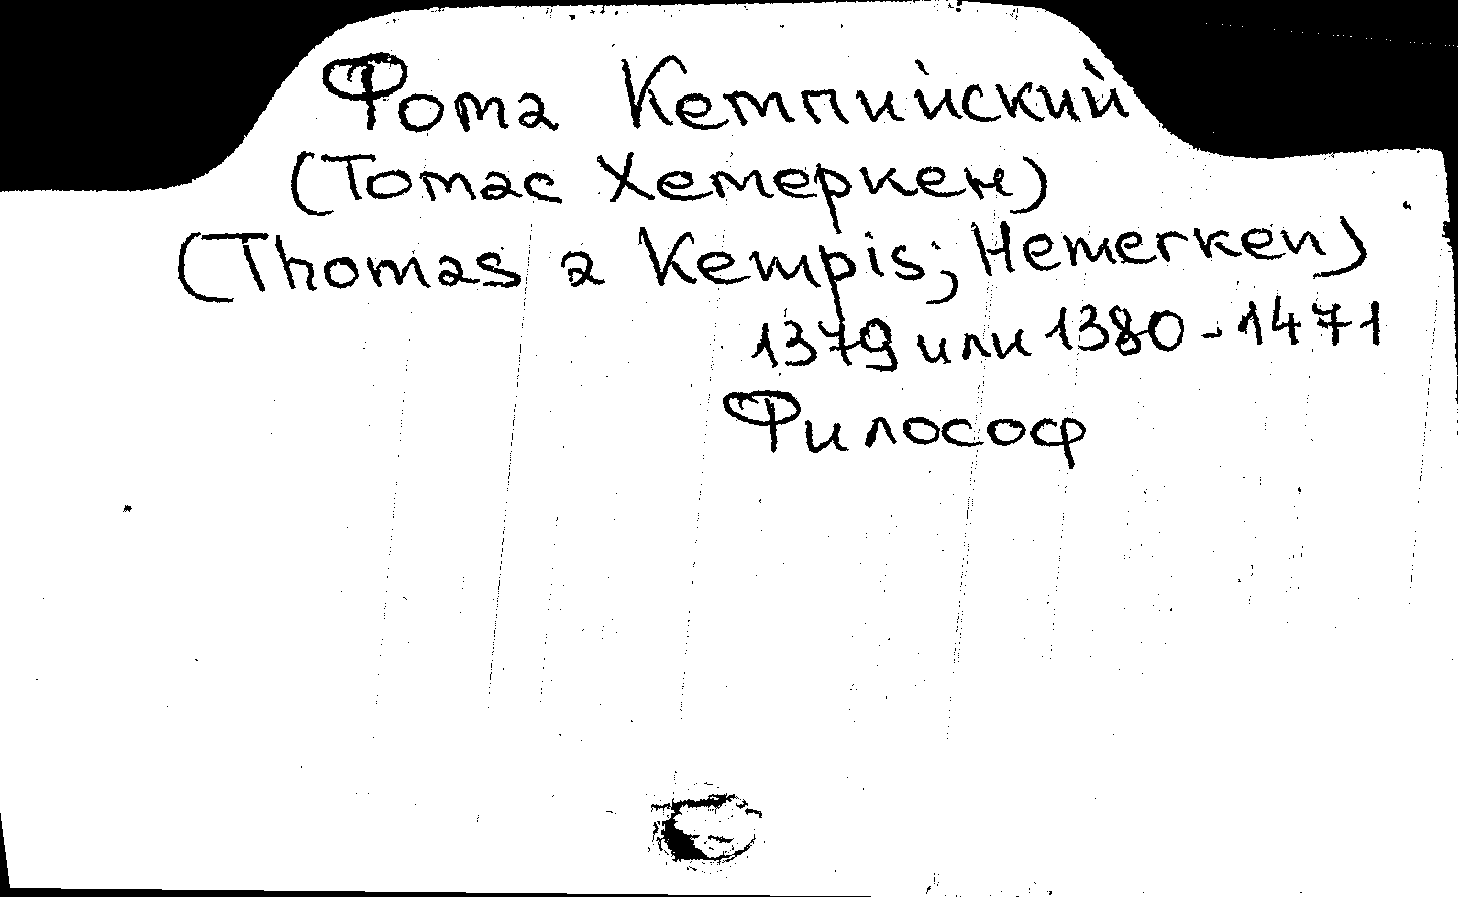 Фома Кемпийский
(Томас Хемеркен)
(Thomas a Kempis; Hemerken)
1379 или 1380 - 1471
Философ